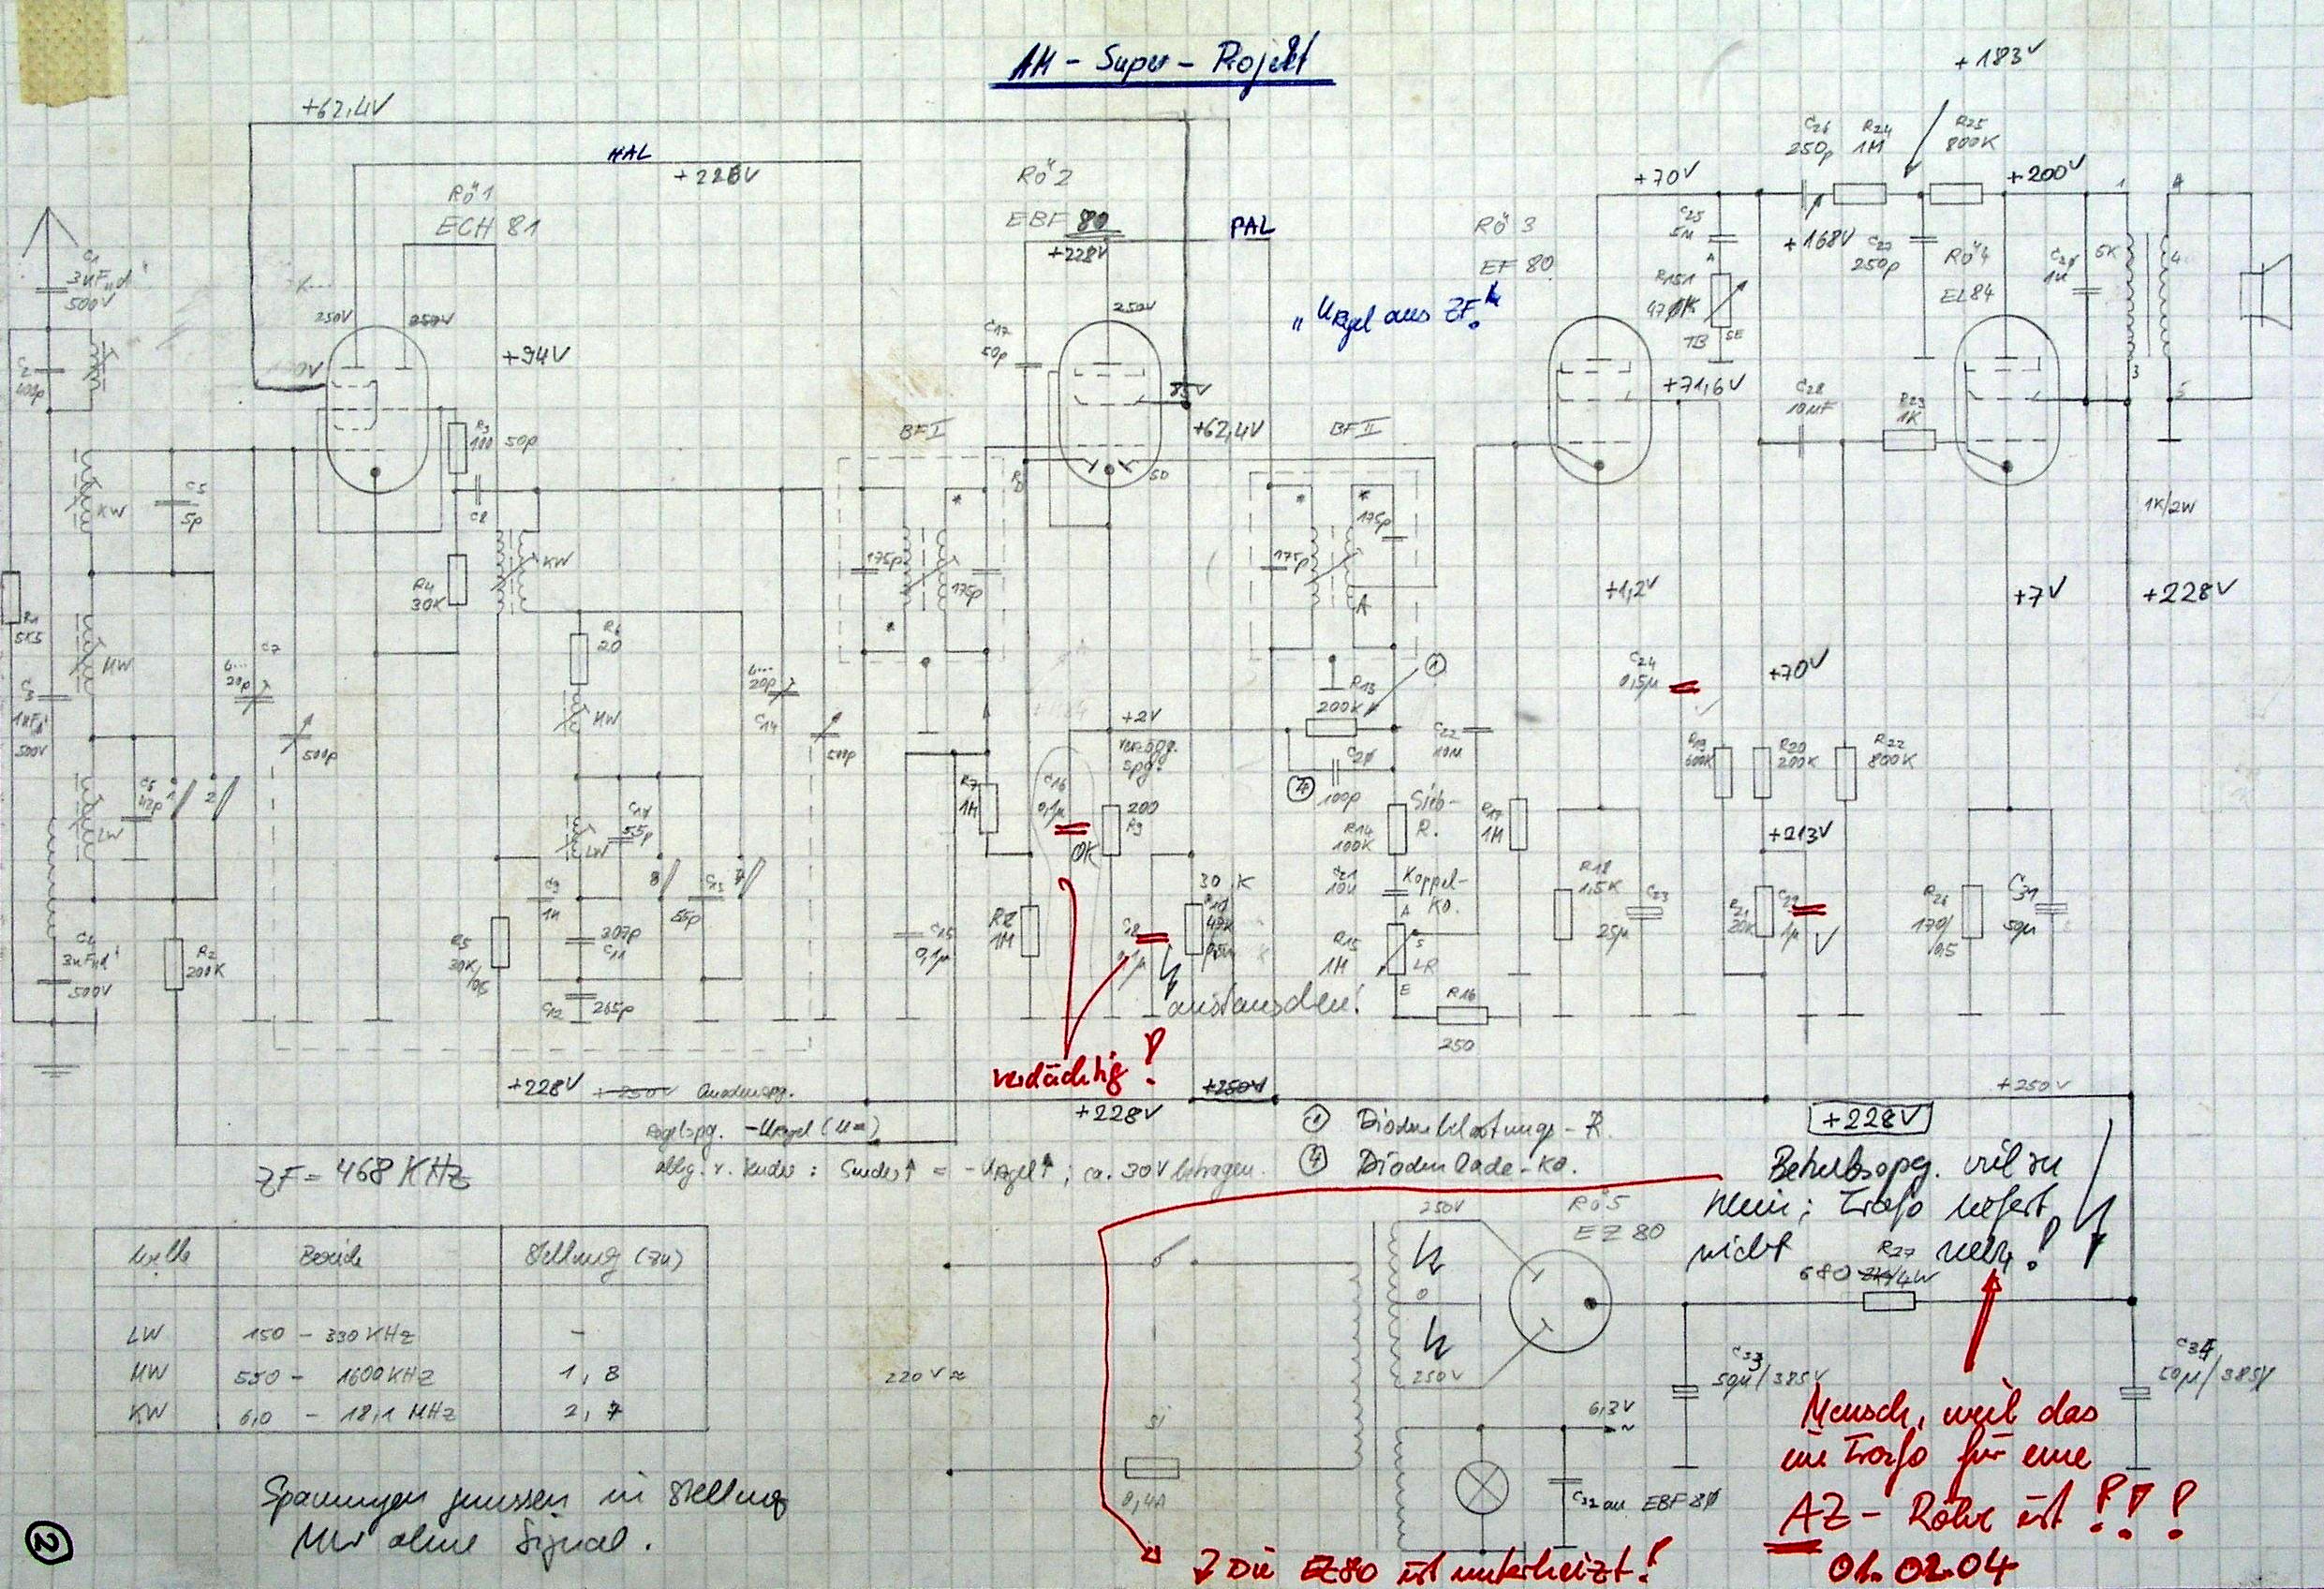 AM - Super - Projekt
+183V
+62,4V
HAL
+228V
Rö1
ECH 81
Rö2
EBF 80
+228V
PAL
Rö 3
EF 80
+70V
C26
250p
R24
1M
R25
800K
+200V
1
4
C25
5n
+168V
C27
250p
Rö4
EL84
1n
5K
C1
3nF
500V
250V
250V
+94V
C17
50p
250V
85V
"URegel aus ZF!"
TB
SE
+71,6V
3
5
+62,4V
C28
10nF
R23
1K
R3
100
50p
BF I
BF II
SD
KW
C5
5p
C8
KW
175p
175p
175p
175p
A
1K/2W
R4
30K
+1,2V
+7V
+228V
R1
5K5
MW
C7
4...
20p
R6
20
MW
4...
20p
C14
500p
500p
C3
500V
R13
200K
1
+2V
verzög.
spg.
C22
10n
C24
0,5µ
+70V
R20
200K
R22
800K
C6
42p
1
2
LW
LW
55p
R7
1M
C16
0,1µ
OK
200
R9
4
100p
Sieb-
R.
R14
100K
R17
1M
+213V
C9
1n
8
C13
55p
7
30 K
C21
10n
Koppel-
Ko.
A
R18
1,5K
C23
25µ
C29
1µ
R26
170/
0,5
C31
50µ
C4
3nF
500V
R2
200K
R5
30K
/0,5
207p
C11
C12
265p
C15
0,1µ
R8
1M
0,1µ
R15
1M
S
LR
E
R16
250
austauschen!
verdächtig!
+228V
+250V
Anodenspg.
+228V
+250V
+250V
Regelspg. -URegel (U=)
abhg. v. Sender: Sender↑ = -URegel↑; ca. 30V betragen.
1 Diodenbelastungs-R.
4 Dioden Lade-Ko.
+228V
ZF = 468 KHz
Betriebsspg. viel zu
klein; Trafo liefert
nicht mehr!
Welle
Bereich
Stellung (zu)
LW
150 - 330 KHz
-
MW
550 - 1600 KHz
1, 8
KW
6,0 - 18,1 MHz
2, 7
250V
0
250V
Rö5
EZ 80
R27
680 2K/4W
220V≈
Si
0,4A
6,3V
~
C32 an EBF 80
C33
50µ/385V
C34
50µ/385V
Mensch, weil das
ein Trafo für eine
AZ - Röhre ist!!!
01.02.04
Die EZ80 ist unterheizt!
Spannungen gemessen in Stellung
MW ohne Signal.
2